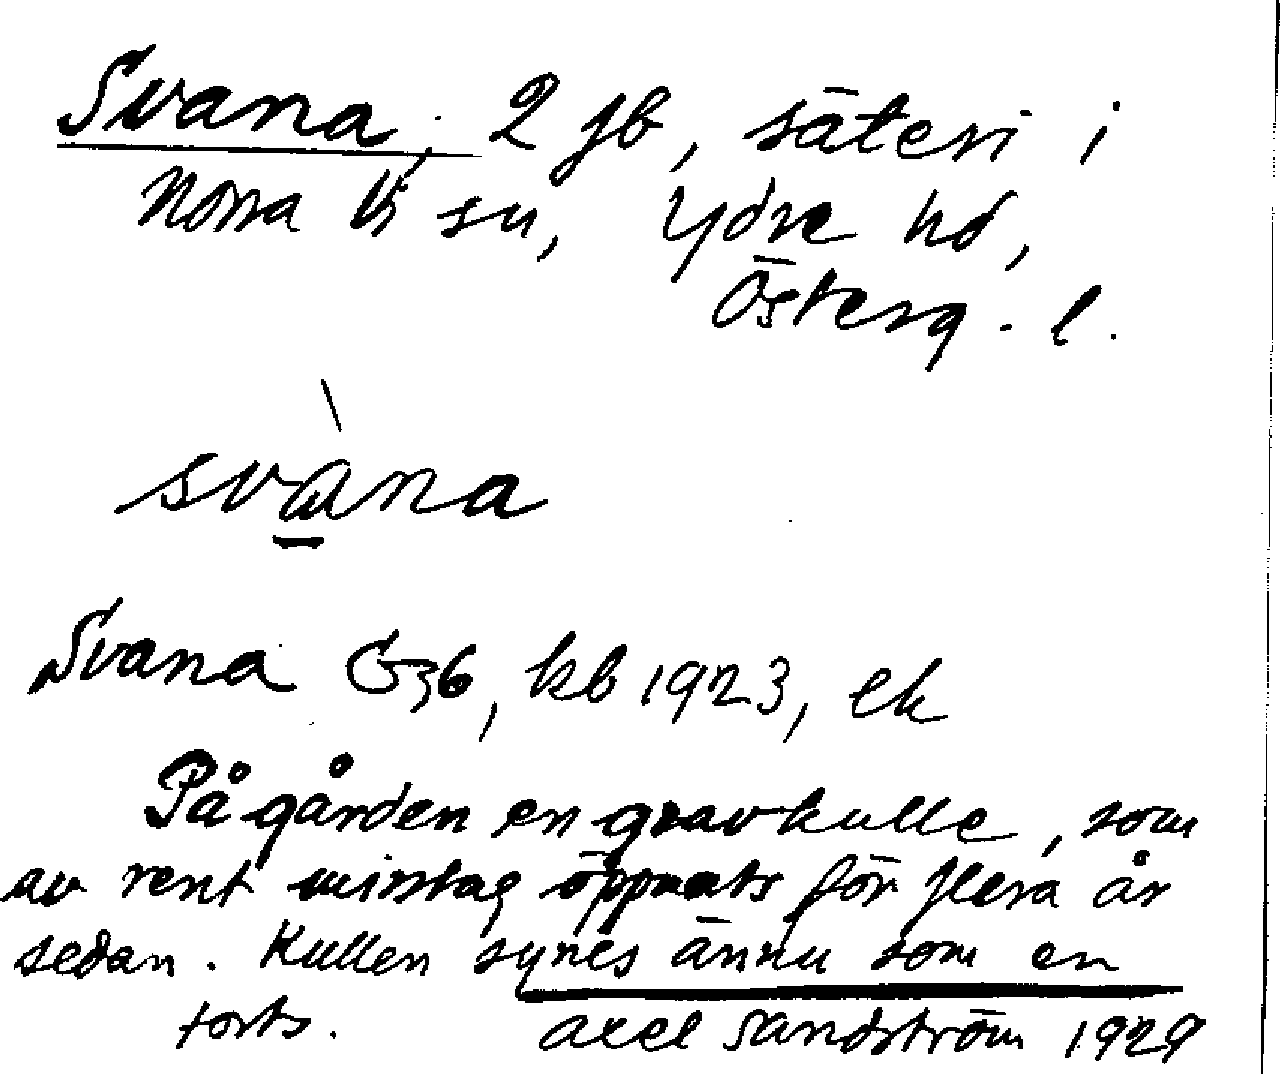 Svana, 2 jb, säteri i
Norra Vi sn, Ydre hd,
Österg. l.
svàna
Svana G36, kb 1923, ek
På gården en gravkulle, som
av rent misstag öppnats för flera år
sedan. Kullen synes ännu som en
axel Sandström 1929